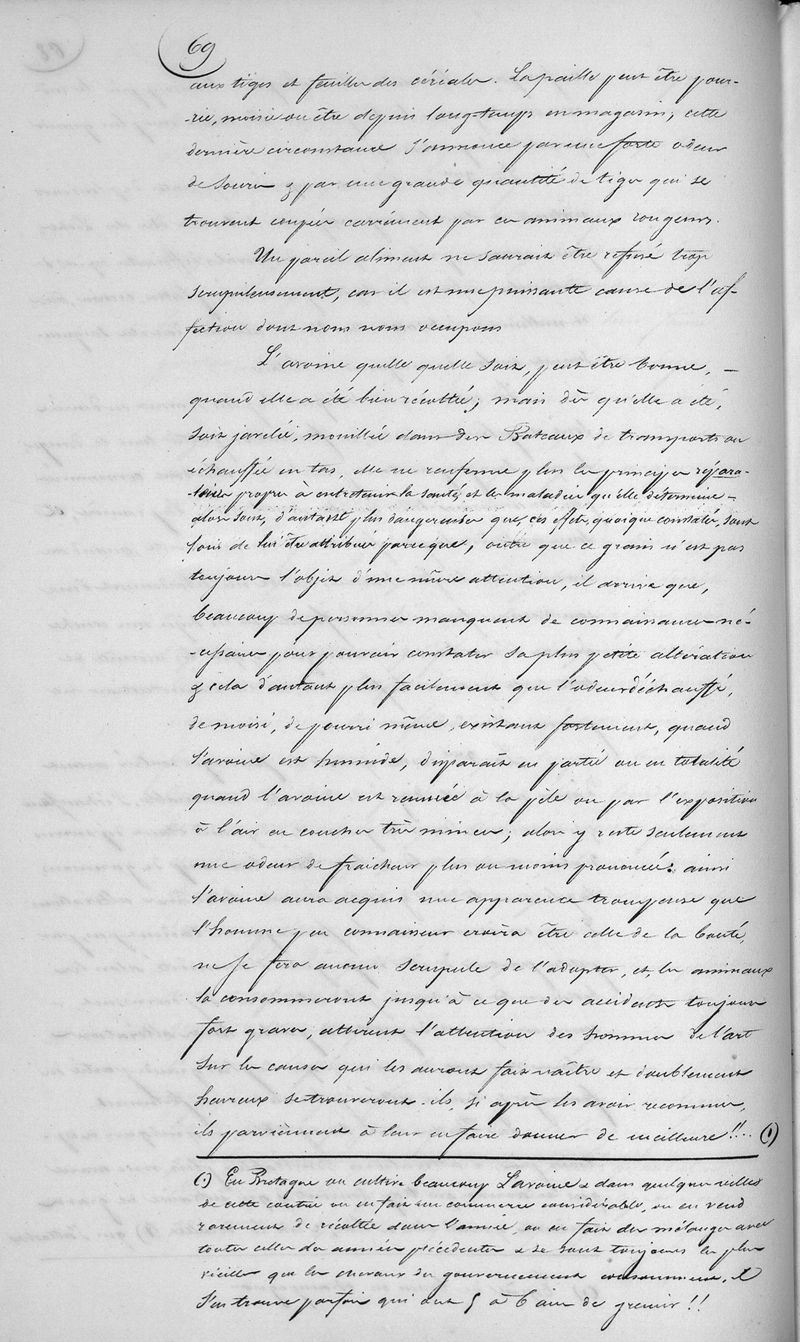 69
aux tiges et feuilles des céréales. La paille peut être pour-
-rie, moisie ou être depuis long-temps en magasin; cette
dernière circonstance s'annonce par une forte odeur
de souris & par une grande quantité de tiges qui se
trouvent coupées carrément par ces animaux rongeurs.
Un pareil aliment ne saurait être refusé trop
scrupuleusement, car il est une puissante cause de l'af-
fection dont nous nous occupons
L'avoine quelle quelle soit, peut être bonne, –
quand elle a été bien récoltée; mais dès qu'elle a été,
soit javelée, mouillée dans des Bateaux de transports ou
échauffée en tas, elle ne renferme plus les principes répara-
-teurs propres à entretenir la santé, et les maladies qu'elle détermine –
alors sont, d'autant plus dangereuses que, ces effets, quoique constatés, sont
loin de lui être attribués parceque, outre que ce grain n'est pas
toujours l'objet d'une mûre attention, il arrive que,
beaucoup de personnes manquent de connaissances né-
-cessaires pour pouvoir constater sa plus petite altération
& cela d'autant plus facilement que l'odeur d'échauffé,
de moisi, de pourri même, existant fortement, quand
l'avoine est humide, disparaît en partie ou en totalité
quand l'avoine est remuée à la pèle ou par l'exposition
à l'air en couches très minces; alors y reste seulement
une odeur de fraicheur plus ou moins prononcée: ainsi
l'avoine aura acquis une apparence trompeuse que
l'homme peu connaisseur croira être celle de la bonté,
ne se fera aucun scrupule de l'adopter, et, les animaux
la consommeront jusqu'à ce que des accidents toujours
fort graves, attirent l'attention des hommes de l'art
sur les causes qui les auront fait naître et doublement
heureux se trouveront-ils, si après les avoir reconnus,
ils parviennent à leur en faire donner de meilleure!!... (1)
(1) En Bretagne on cultive beaucoup L'avoine & dans quelques villes
de cette contrée on en fait un commerce considérable, on en vend
rarement de récoltée dans l'année, on en fait des mélanges avec
toutes celles des années précédentes & se sont toujours les plus
vieilles que les chevaux du gouvernement consomment, &
s'en trouve parfois qui ont 5 à 6 ans de grenier!!